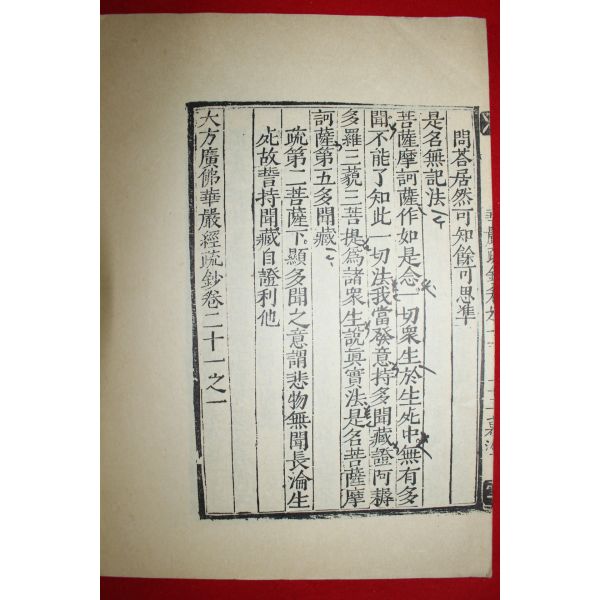 問荅居然可知餘可思準
是名無記法
菩薩摩訶薩作如是念一切衆生於生死中無有多
聞不能了知此一切法我當發意持多聞藏證阿耨
多羅三藐三菩提爲諸衆生說眞實法是名菩薩摩
訶薩第五多聞藏
疏第二菩薩下顯多聞之意謂悲物無聞長淪生
死故誓持聞藏自證利他
大方廣佛華嚴經疏鈔卷二十一之一